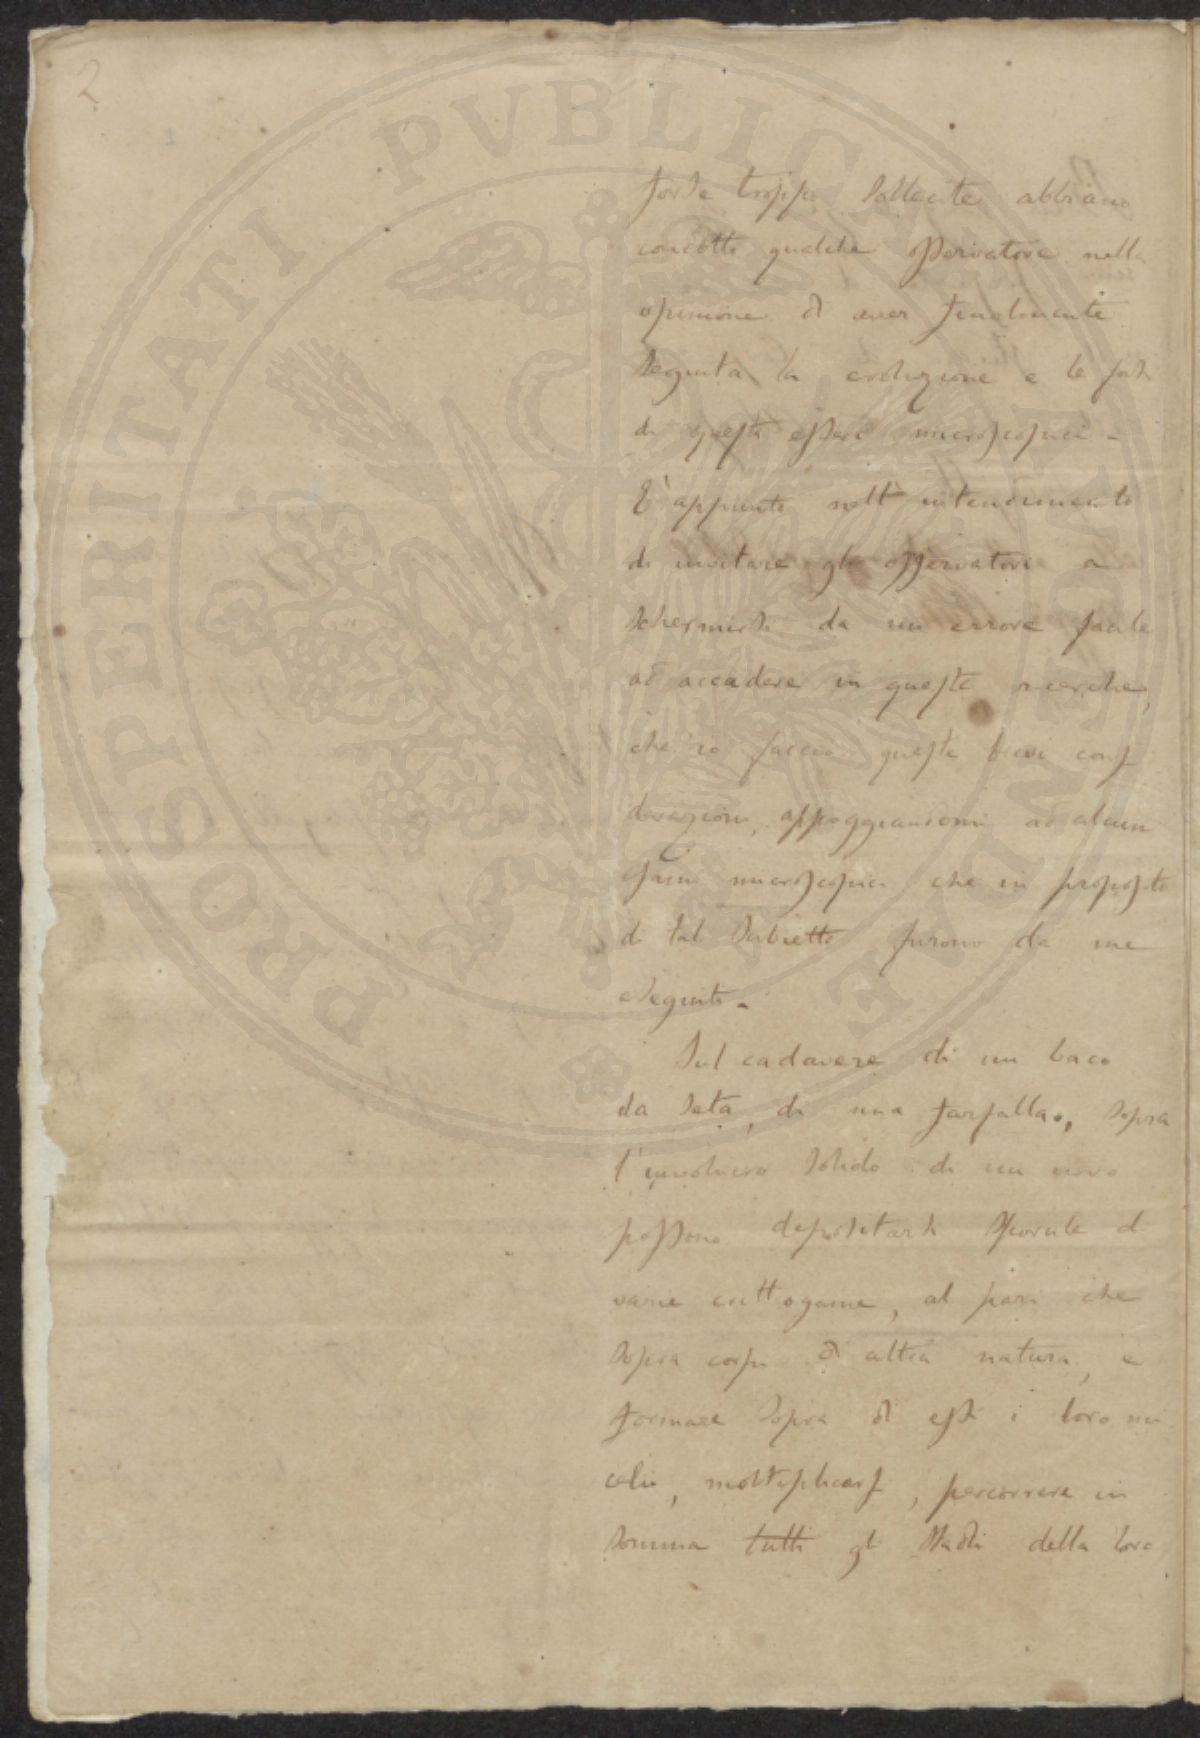 2
PROSPERITATI PVBLICAE AVGENDAE
forse troppo abbiano
condotto qualche osservatore nella
opinione di aver finalmente
seguita la evoluzione e le fasi
di questi esseri microscopici -
E' appunto nell' intendimento
di invitare gli osservatori a
schermirsi da un errore facile
ad accadere in queste ricerche,
che io faccio queste brevi consi
derazioni, appoggiandomi ad alcuni
esami microscopici che in proposito
di tal subietto furono da me
eseguiti -
Sul cadavere di un baco
da seta, di una farfalla, sopra
l'involucro solido di un uovo
possono depositarsi sporule di
varie crittogame, al pari che
sopra corpi di altra natura, e
formare sopra di essi i loro mi
celii, moltiplicarsi, percorrere in
somma tutti gli stadi della loro